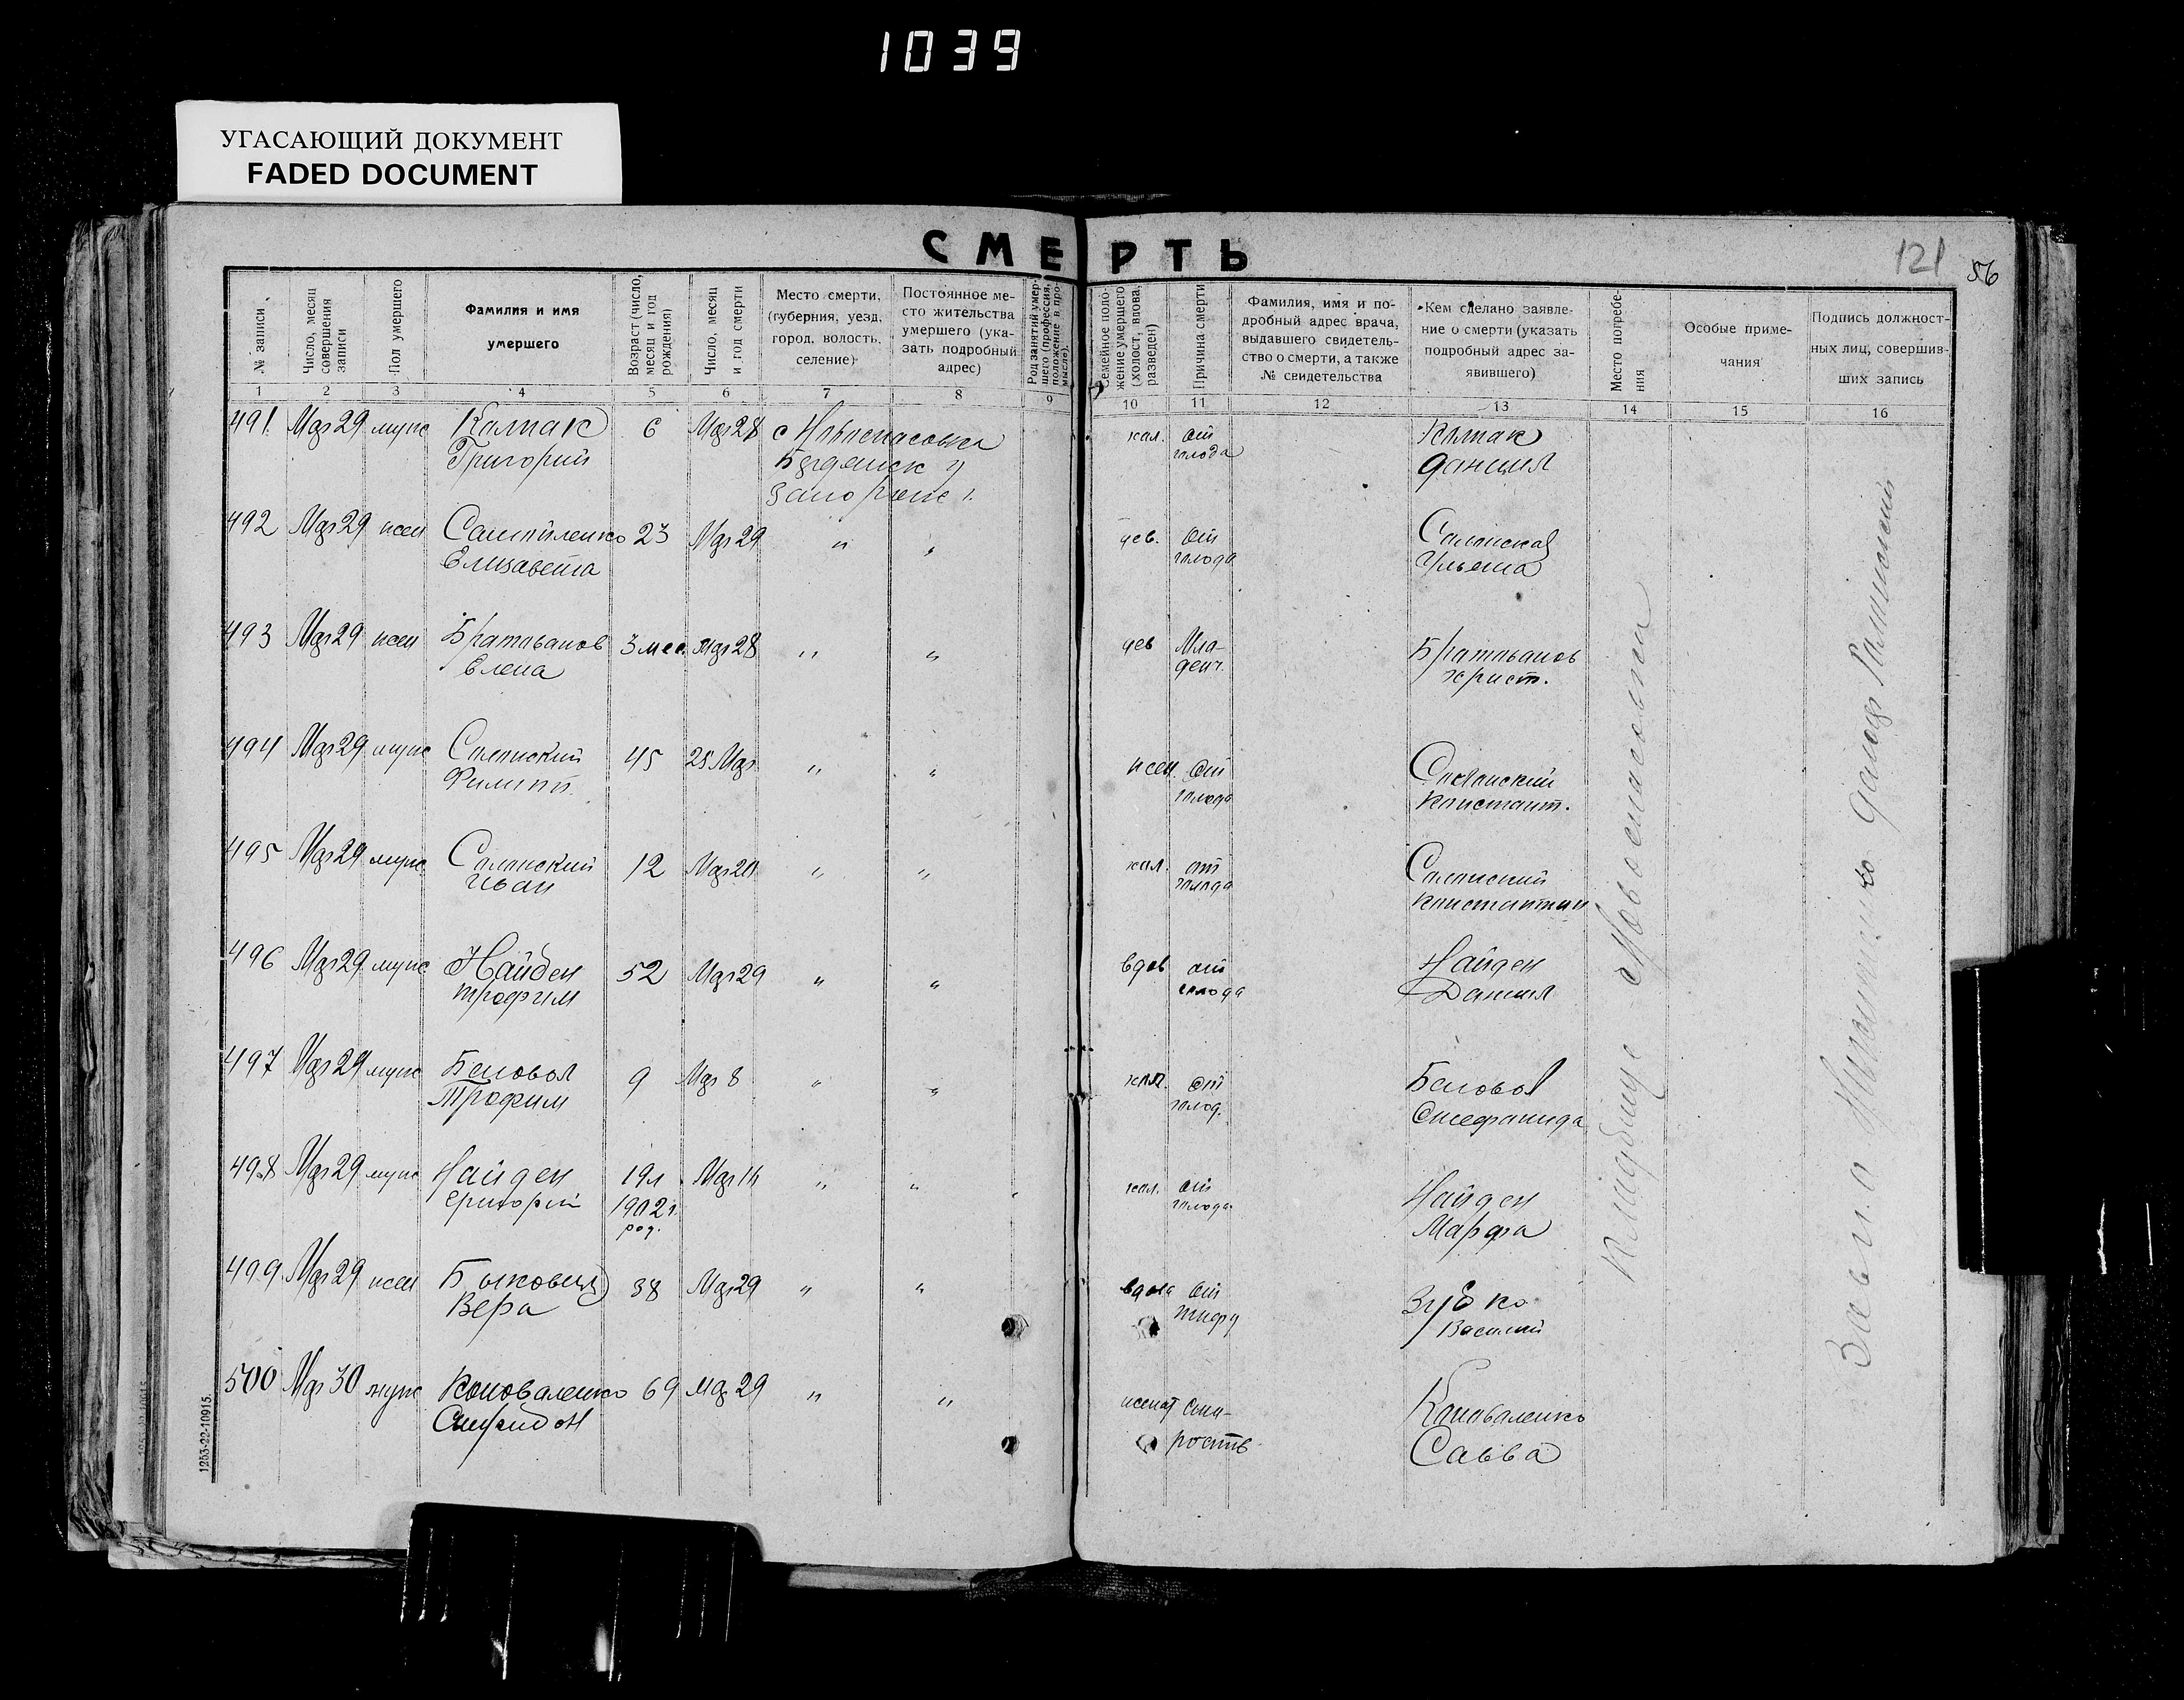 1039
УГАСАЮЩИЙ ДОКУМЕНТ
FADED DOCUMENT
СМЕРТЬ
121
56
№ записи
Число, месяц совершения записи
Пол умершего
Фамилия и имя умершего
Возраст (число, месяц и год рождения)
Число, месяц и год смерти
Место смерти, (губерния, уезд, город, волость, селение)
Постоянное место жительства умершего (указать подробный адрес)
Род занятий умершего (профессия, положение в промысле).
Семейное положение умершего (холост, вдова, разведен)
Причина смерти
Фамилия, имя и подробный адрес врача, выдавшего свидетельство о смерти, а также № свидетельства
Кем сделано заявление о смерти (указать подробный адрес заявившего)
Место погребения
Особые примечания
Подпись должностных лиц, совершивших запись
1 2 3 4 5 6 7 8 9 10 11 12 13 14 15 16
491 Мдя 29 муж Колпак 6 Мдя 28 с Новоспасовка хол. от Колпак
Григорий Бердянск у голода Данил
492 Мдя 29 жен Самойленко 23 Мдя 29 " " дев. от
Елизавета голода Ульяна
493 Мдя 29 жен Братованов 3 мес. Мдя 28 " " дев Мла- Братованов
Елена денч. христ.
494 Мдя 29 муж 45 25 Мдя " " жен от
Филипп голода Констант.
495 Мдя 29 муж 12 Мдя 20 " " хол. от
Иван голода Константин
496 Мдя 29 муж Найден 52 Мдя 29 " " вдов от Найден
Трофим голода Данил
497 Мдя 29 муж Беловол 9 Мдя 8 " " хол. от Беловол
Трофим голод. Стефанида
498 Мдя 29 муж Найден 19 л Мдя 14 " " хол. от Найден
Григорий 1902 г. голода Марфа
род.
499 Мдя 29 жен Быковец 38 Мдя 29 " " вдова от Зубко
Вера тифу Василий
500 Мдя 30 муж Коноваленко 69 Мдя 29 " " женат Ста- Коноваленко
Спиридон рость Савва
Кладбище с Новоспасовки
1253-22-10915.